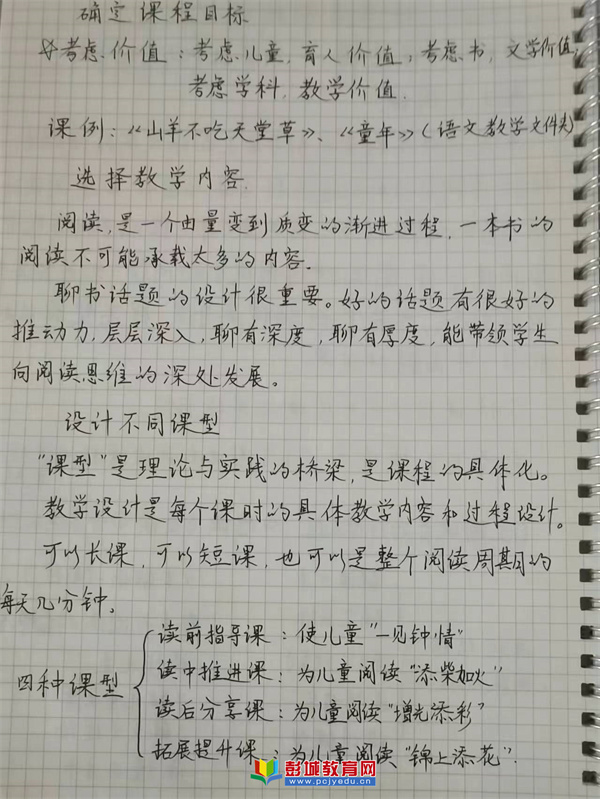 确定课程目标
考虑价值：考虑儿童，育人价值；考虑书，文学价值；
考虑学科，教学价值.
课例：《山羊不吃天堂草》、《童年》（语文教学文件夹）
选择教学内容.
阅读，是一个由量变到质变的渐进过程，一本书的
阅读不可能承载太多的内容.
聊书话题的设计很重要。好的话题有很好的
推动力，层层深入，聊有深度，聊有厚度，能带领学生
向阅读思维的深处发展。
设计不同课型
"课型"是理论与实践的桥梁，是课程的具体化。
教学设计是每个课时的具体教学内容和过程设计。
可以长课，可以短课，也可以是整个阅读周期的
每天几分钟。
四种课型
读前指导课：使儿童"一见钟情"
读中推进课：为儿童阅读"添柴加火"
读后分享课：为儿童阅读"增光添彩"
拓展提升课：为儿童阅读"锦上添花".
彭城教育网
www.pcjyedu.cn